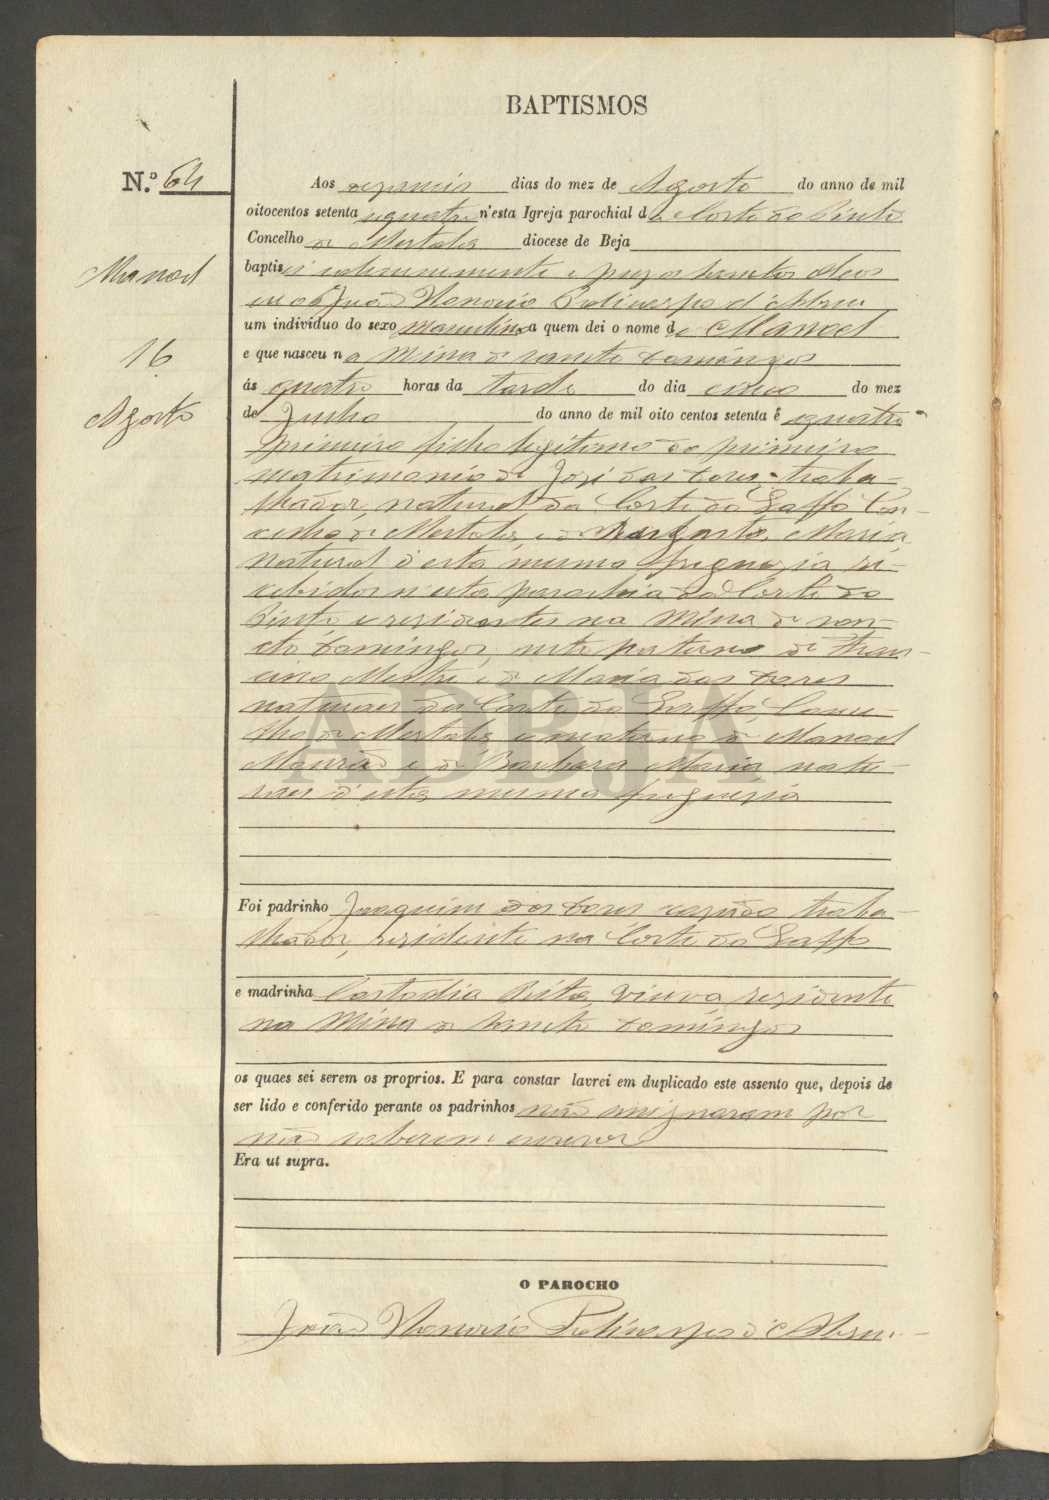 BAPTISMOS
N.º 64
Aos dezaseis dias do mez de Agosto do anno de mil
oitocentos setenta e quatro n'esta Igreja parochial de Corte do Pinto
Concelho de Mertola diocese de Beja
Manoel
baptisei solemnemente e puz os sanctos oleos
eu João Honorio d'Abreu
um individuo do sexo masculino a quem dei o nome de Manoel
16
e que nasceu na Mina de Sancto Domingos
ás quatro horas da tarde do dia cinco do mez
Agosto
de Junho do anno de mil oito centos setenta e quatro
primeiro filho legitimo do primeiro
matrimonio de José das Dores, traba-
lhador, natural da Corte do Gaffo Con-
celho de Mertola, e de Maria,
natural d'esta mesma freguezia re-
cebidos n'esta parochia da Corte do
Pinto e rezidentes na Mina de San-
cto Domingos, neto paterno de Fran-
cisco Mestre e de Maria das Dores
naturaes da Corte do Gaffo, Conce-
lho de Mertola, e materno de Manoel
Mourão e de Barbara Maria, natu-
raes d'esta mesma freguezia
Foi padrinho Joaquim das Dores cazado traba-
lhador, rezidente na Corte do Gaffo
e madrinha Custodia Rita, viuva, rezidente
na Mina de Sancto Domingos
os quaes sei serem os proprios. E para constar lavrei em duplicado este assento que, depois de
ser lido e conferido perante os padrinhos não assignaram por
não saberem escrever
Era ut supra.
O PAROCHO
João Honorio d'Abreu
ADBJA